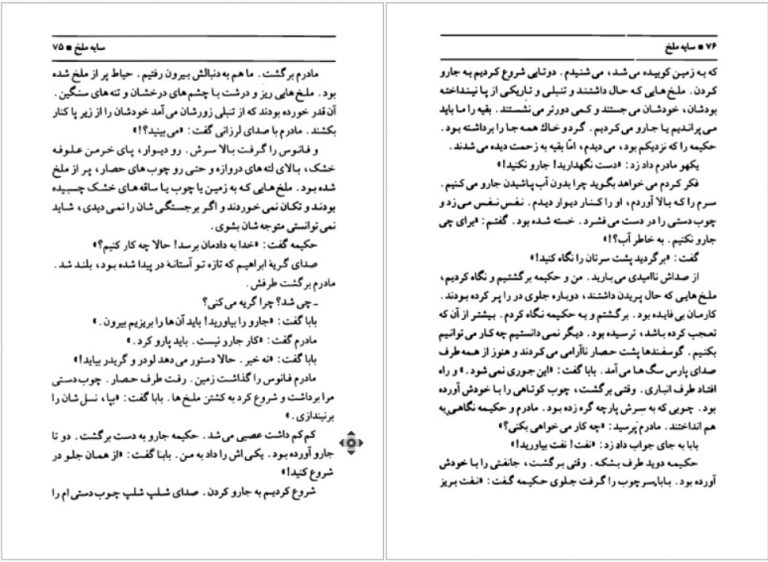 سایه ملخ ■ ۷۵
مادرم برگشت. ما هم به دنبالش بیرون رفتیم. حیاط پر از ملخ شده
بود. ملخ‌هایی ریز و درشت با چشم‌های درخشان و تنه‌های سنگین.
آن قدر خورده بودند که از تنبلی زورشان می‌آمد خودشان را از زیر پا کنار
بکشند. مادرم با صدای لرزانی گفت: «می‌بینید؟!»
و فانوس را گرفت بالا سرش. رو دیوار، پای خرمن علوفه
خشک، بالای لته‌های دروازه و حتی رو چوب‌های حصار، پر از ملخ
شده بود. ملخ‌هایی که به زمین یا چوب یا ساقه‌های خشک چسبیده
بودند و تکان نمی‌خوردند و اگر برجستگی‌شان را نمی‌دیدی، شاید
نمی‌توانستی متوجه‌شان بشوی.
حکیمه گفت: «خدا به دادمان برسد! حالا چه کار کنیم؟»
صدای گریهٔ ابراهیم که تازه تو آستانهٔ در پیدا شده بود، بلند شد.
مادرم برگشت طرفش.
ـ چی شد؟ چرا گریه می‌کنی؟
بابا گفت: «جارو را بیاورید! باید آن‌ها را بریزیم بیرون.»
مادرم گفت: «کار جارو نیست. باید پارو کرد.»
بابا گفت: «نه خیر. حالا دستور می‌دهد لودر و گریدر بیاید!»
مادرم فانوس را گذاشت زمین. رفت طرف حصار. چوب دستی
مرا برداشت و شروع کرد به کشتن ملخ‌ها. بابا گفت: «بپا، نسل‌شان را
برنیندازی.»
کم کم داشت عصبی می‌شد. حکیمه جارو به دست برگشت. دو تا
جارو آورده بود. یکی‌اش را داد به من. بابا گفت: «از همان جلو در
شروع کنید!»
شروع کردیم به جارو کردن. صدای شلپ شلپ چوب دستی‌ام را
۷۶ ■ سایه ملخ
که به زمین کوبیده می‌شد، می‌شنیدم. دوتایی شروع کردیم به جارو
کردن. ملخ‌هایی که حال داشتند و تنبلی و تاریکی از پا نینداخته
بودشان، خودشان می‌جستند و کمی دورتر می‌نشستند. بقیه را ما باید
می‌راندیم یا جارو می‌کردیم. گرد و خاک همه جا را برداشته بود.
حکیمه را که نزدیکم بود، می‌دیدم، امّا بقیه به زحمت دیده می‌شدند.
یکهو مادرم داد زد: «دست نگهدارید! جارو نکنید!»
فکر کردم می‌خواهد بگوید چرا بدون آب پاشیدن جارو می‌کنیم.
سرم را که بالا آوردم، او را کنار دیوار دیدم. نفس نفس می‌زد و
چوب دستی را در دست می‌فشرد. خسته شده بود. گفتم: «برای چی
جارو نکنیم. به خاطر آب؟!»
گفت: «برگردید پشت سرتان را نگاه کنید!»
از صداش ناامیدی می‌بارید. من و حکیمه برگشتیم و نگاه کردیم،
ملخ‌هایی که حال پریدن داشتند، دوباره جلوی در را پر کرده بودند.
کارمان بی‌فایده بود. برگشتم و به حکیمه نگاه کردم. بیشتر از آن که
تعجب کرده باشد، ترسیده بود. دیگر نمی‌دانستیم چه کار می‌توانیم
بکنیم. گوسفندها پشت حصار ناآرامی می‌کردند و هنوز از همه طرف
صدای پارس سگ‌ها می‌آمد. بابا گفت: «این جوری نمی‌شود.» و راه
افتاد طرف انباری. وقتی برگشت، چوب کوتاهی را با خودش آورده
بود. چوبی که به سرش پارچه گره زده بود. مادرم و حکیمه نگاهی به
هم انداختند. مادرم پرسید: «چه کار می‌خواهی بکنی؟»
بابا به جای جواب داد زد: «نفت! نفت بیاورید!»
حکیمه دوید طرف بشکه. وقتی برگشت، جانفتی را با خودش
آورده بود. بابا سر چوب را گرفت جلوی حکیمه گفت: «نفت بریز